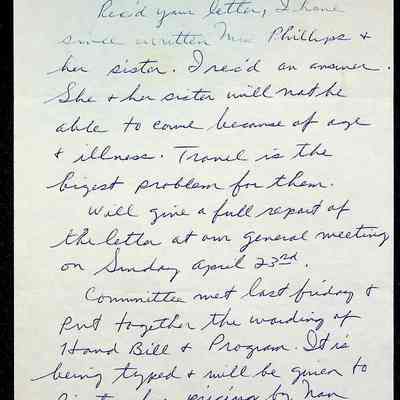 Rec'd your letter, I have
since written Mrs Phillips &
her sister. I rec'd an answer.
She & her sister will not be
able to come because of age
& illness. Travel is the
bigest problem for them.
Will give a full report of
the letter at our general meeting
on Sunday April 23rd.
Committee met last friday &
put together the wording of
Hand Bill & Program. It is
being typed & will be given to
pricing by Nan